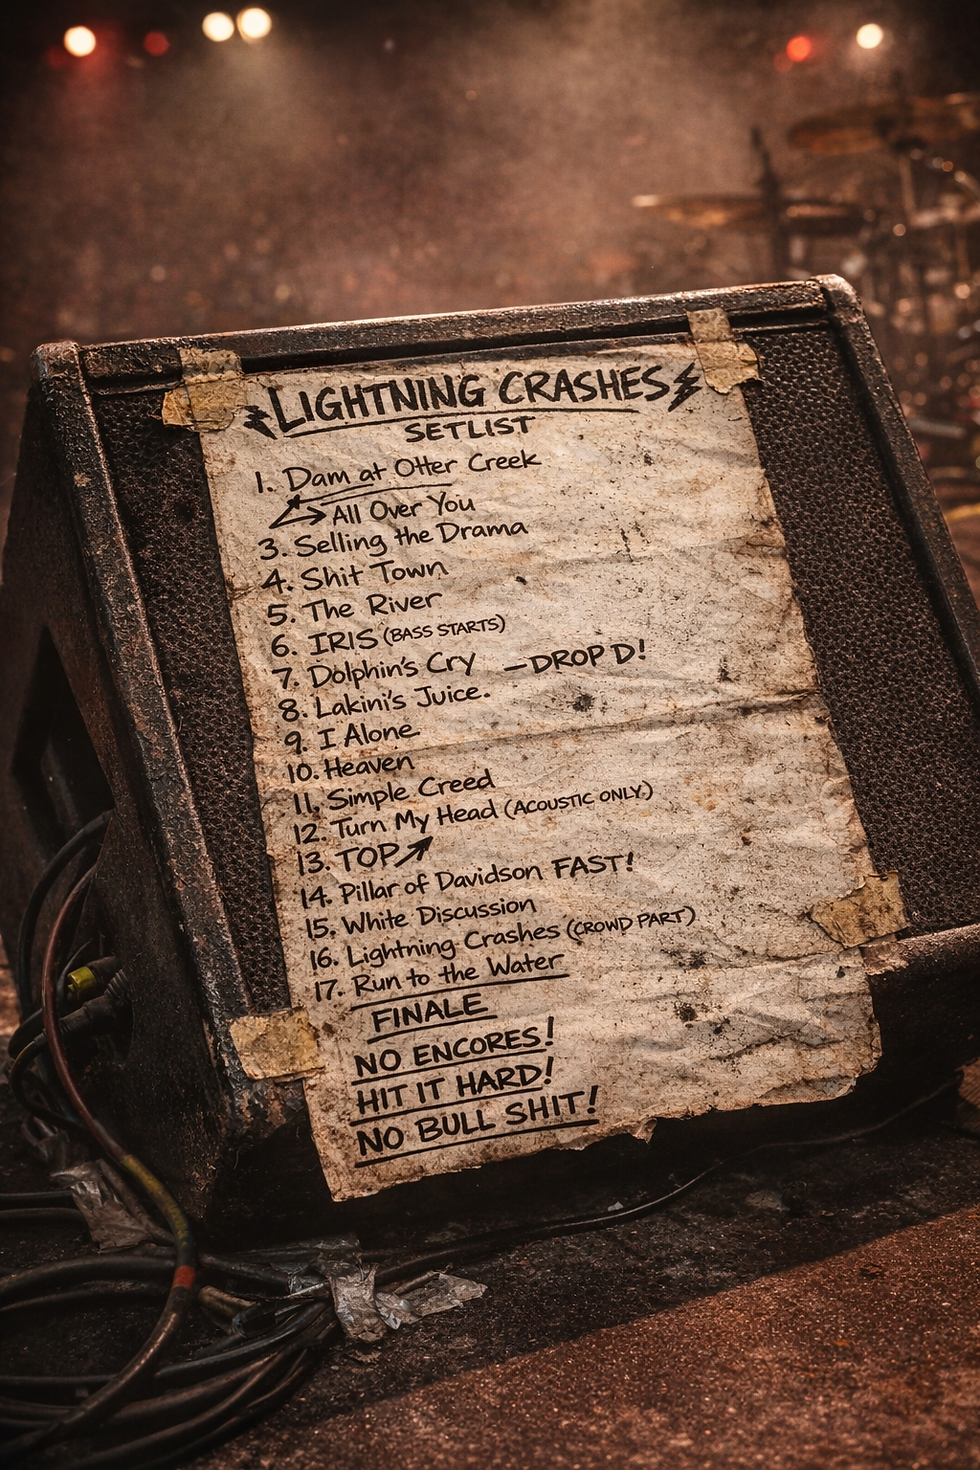 LIGHTNING CRASHES
SETLIST
1. Dam at Otter Creek
All Over You
3. Selling the Drama
4. Shit Town
5. The River
6. IRIS (BASS STARTS)
7. Dolphin's Cry —DROP D!
8. Lakini's Juice.
9. I Alone
10. Heaven
11. Simple Creed
12. Turn My Head (ACOUSTIC ONLY)
13. TOP
14. Pillar of Davidson FAST!
15. White Discussion
16. Lightning Crashes (CROWD PART)
17. Run to the Water
FINALE
NO ENCORES!
HIT IT HARD!
NO BULL SHIT!